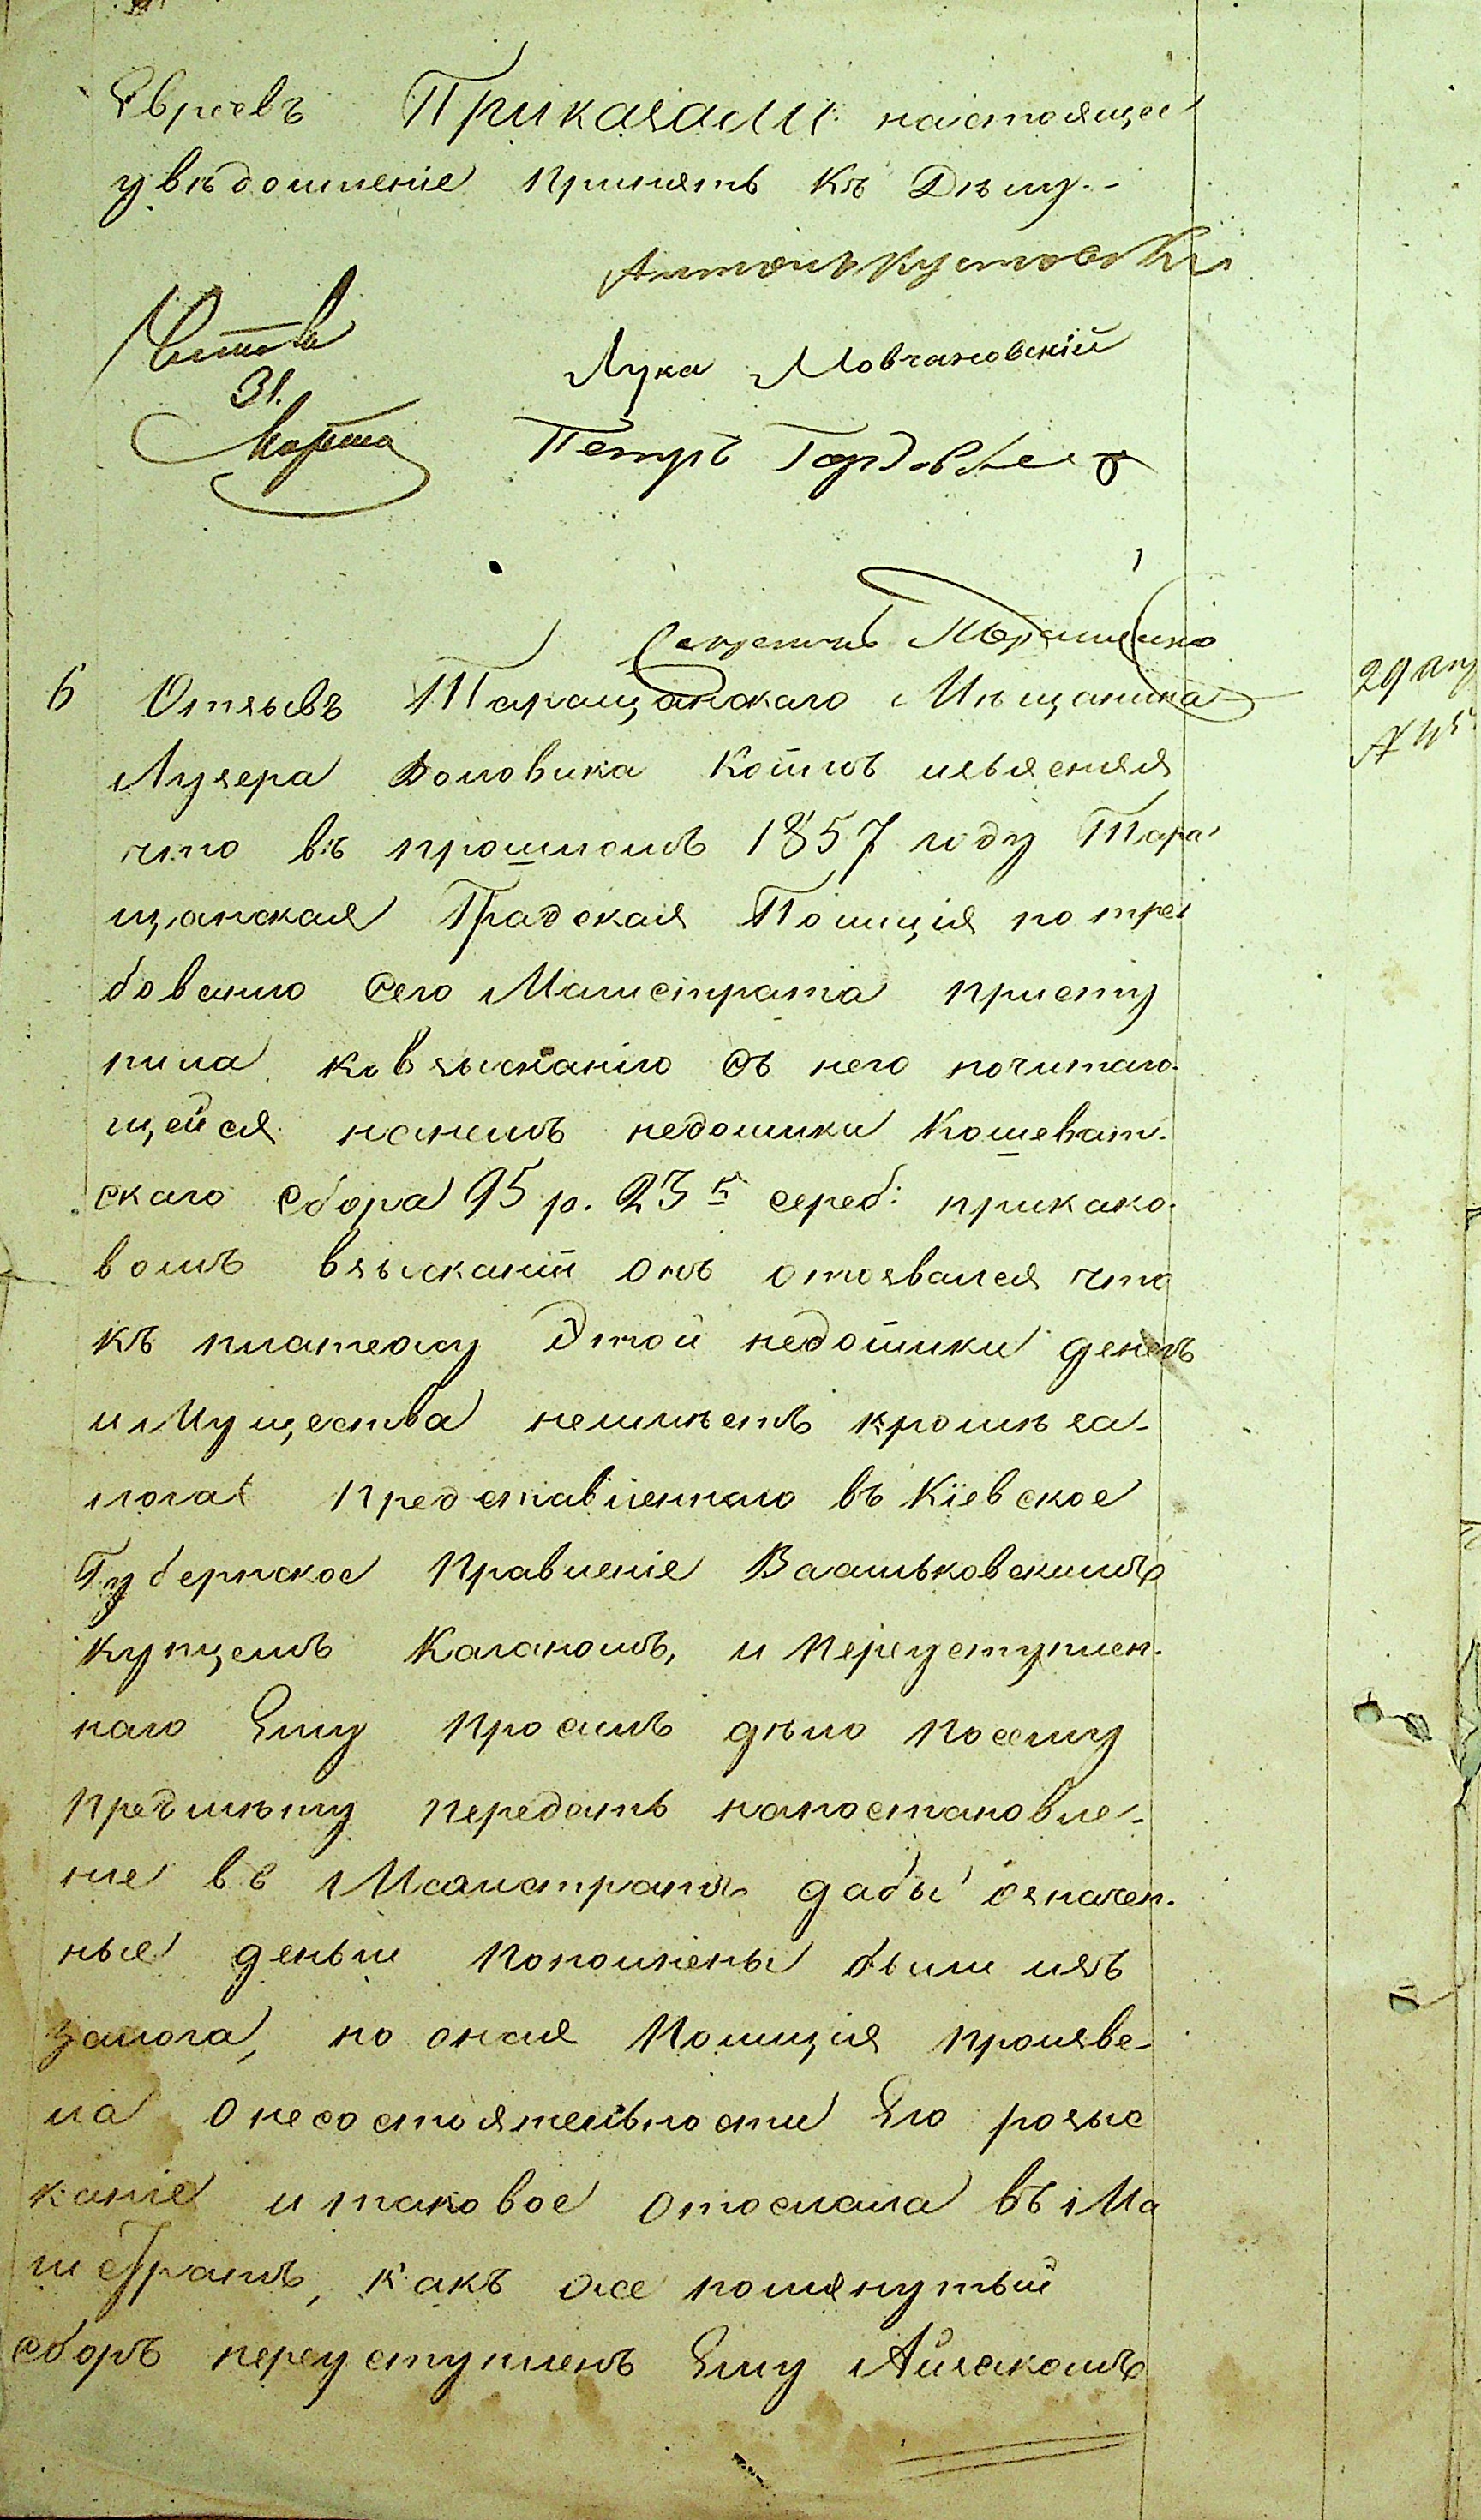 Евреевъ Приказали: настоящее
увѣдомленіе принять къ Дѣлу.-
Антонъ Кустовскій
Читалъ
31.
Марта
Лука Мовчановскій
Петръ
Секретарь
6 Отзывъ Таращанскаго Мѣщанина
29 апр
№ 45
Лузера Боловика коимъ изъясняя
что въ прошломъ 1857 году Тара
щанская Градская Полиція по тре
бованію сего Магистрата присту
пила ко взысканію съ него почитаю-
щейся нанемъ недоимки Кошеват-
скаго сбора 95 р. 23 к сереб: прикако-
вомъ взысканіи онъ отозвался что
къ платежу Этой недоимки денегъ
и Имущества неимѣетъ кромѣ за-
лога представленнаго въ Кіевское
Губернское Правленіе Васильковскимъ
купцемъ Каганомъ, и переуступлен-
наго Ему просилъ дѣло посему
предмѣту передать напостановле-
ніе въ Магистратъ дабы означен-
ные деньги пополнены были изъ
залога, но оная Полиція произве-
ла онесостоятельности Его розыс
каніе и таковое отослала въ Ма
гистратъ, какъ же помянутый
сборъ переуступленъ Ему Айзакомъ